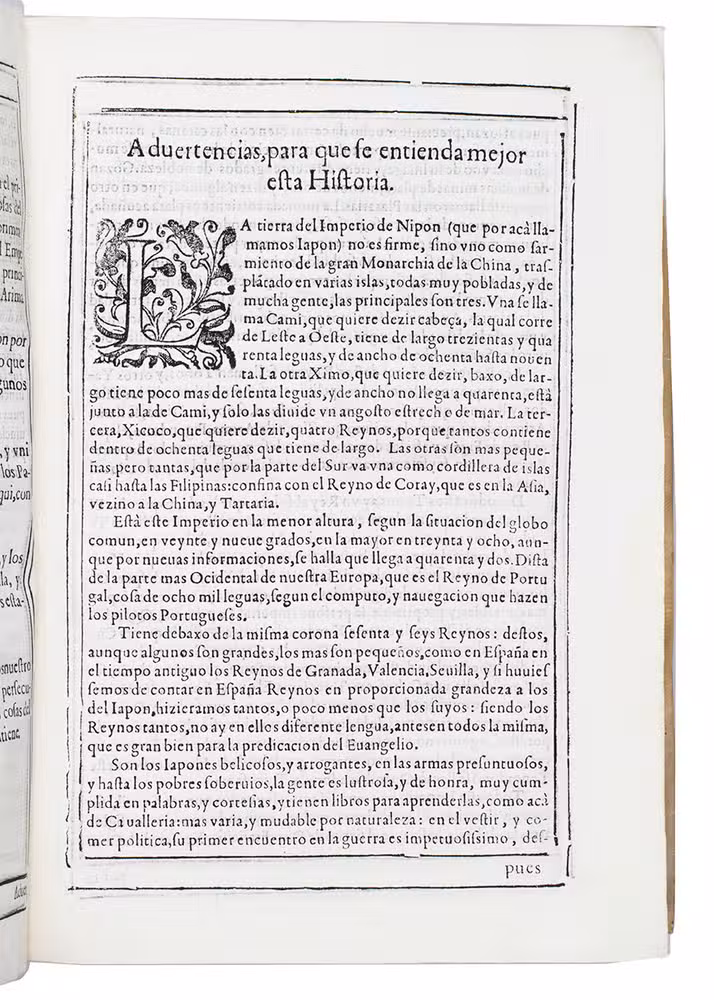 o que
gunos
, y vni
los Pa-
qui, con
y los
la, y
snueſtro
perſecu-
coſas del
tiene.
Aduertencias, para que ſe entienda mejor
eſta Hiſtoria.
LA tierra del Imperio de Nipon (que por acà lla-
mamos Iapon) no es firme, ſino vno como ſar-
miento de la gran Monarchia de la China, traſ-
plãtado en varias islas, todas muy pobladas, y de
mucha gente, las principales ſon tres. Vna ſe lla-
ma Cami, que quiere dezir cabeça, la qual corre
de Leſte a Oeſte, tiene de largo trezientas y qua
renta leguas, y de ancho de ochenta haſta nouen
ta. La otra Ximo, que quiere dezir, baxo, de lar-
go tiene poco mas de ſeſenta leguas, y de ancho no llega a quarenta, eſtà
junto a la de Cami, y ſolo las diuide vn angoſto eſtrecho de mar. La ter-
cera, Xicoco, que quiere dezir, quatro Reynos, porque tantos contiene
dentro de ochenta leguas que tiene de largo. Las otras ſon mas peque-
ñas, pero tantas, que por la parte del Sur va vna como cordillera de islas
caſi haſta las Filipinas: confina con el Reyno de Coray, que es en la Aſia,
vezino a la China, y Tartaria.
Eſtà eſte Imperio en la menor altura, ſegun la ſituacion del globo
comun, en veynte y nueue grados, en la mayor en treynta y ocho, aun-
que por nueuas informaciones, ſe halla que llega a quarenta y dos. Diſta
de la parte mas Ocidental de nueſtra Europa, que es el Reyno de Portu
gal, coſa de ocho mil leguas, ſegun el computo, y nauegacion que hazen
los pilotos Portugueſes.
Tiene debaxo de la miſma corona ſeſenta y ſeys Reynos: deſtos,
aunque algunos ſon grandes, los mas ſon pequeños, como en Eſpaña en
el tiempo antiguo los Reynos de Granada, Valencia, Seuilla, y ſi huuieſ
ſemos de contar en Eſpaña Reynos en proporcionada grandeza a los
del Iapon, hizieramos tantos, o poco menos que los ſuyos: ſiendo los
Reynos tantos, no ay en elles diferente lengua, antes en todos la miſma,
que es gran bien para la predicacion del Euangelio.
Son los Iapones belicoſos, y arrogantes, en las armas preſuntuoſos,
y haſta los pobres ſoberuios, la gente es luſtroſa, y de honra, muy cum-
plida en palabras, y corteſias, y tienen libros para aprenderlas, como acà
de Caualleria: mas varia, y mudable por naturaleza: en el veſtir, y co-
mer politica, ſu primer encuentro en la guerra es impetuoſiſſimo, deſ-
pues